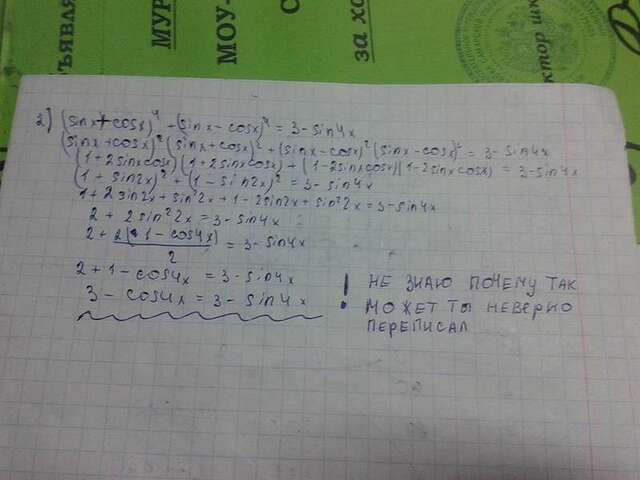 2) (sinx+cosx)⁴ + (sinx-cosx)⁴ = 3-sin4x
(sinx+cosx)²(sinx+cosx)²+(sinx-cosx)²(sinx-cosx)² = 3-sin4x
(1+2sinxcosx)(1+2sinxcosx)+(1-2sinxcosx)(1-2sinxcosx) = 3-sin4x
(1+sin2x)²+(1-sin2x)² = 3-sin4x
1+2sin2x+sin²2x+1-2sin2x+sin²2x=3-sin4x
2+2sin²2x=3-sin4x
2+2(1-cos4x)/2 = 3-sin4x
2+1-cos4x=3-sin4x
3-cos4x=3-sin4x
! НЕ ЗНАЮ ПОЧЕМУ ТАК
МОЖЕТ ТЫ НЕВЕРНО
ПЕРЕПИСАЛ
МУР
МОУ-
С
за хо
ктор шк